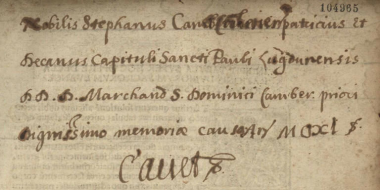 104965
Nobilis Stephanus patricius et
Decanus Capituli Sancti Pauli Lugdunensis
D D. D. Marchand S. Dominici Camber. priori
Dignissimo memoriæ causa MDCXI
Cavet